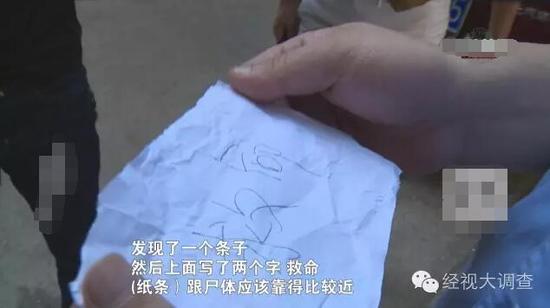 救命
发现了一个条子
然后上面写了两个字 救命
(纸条)跟尸体应该靠得比较近
经视大调查